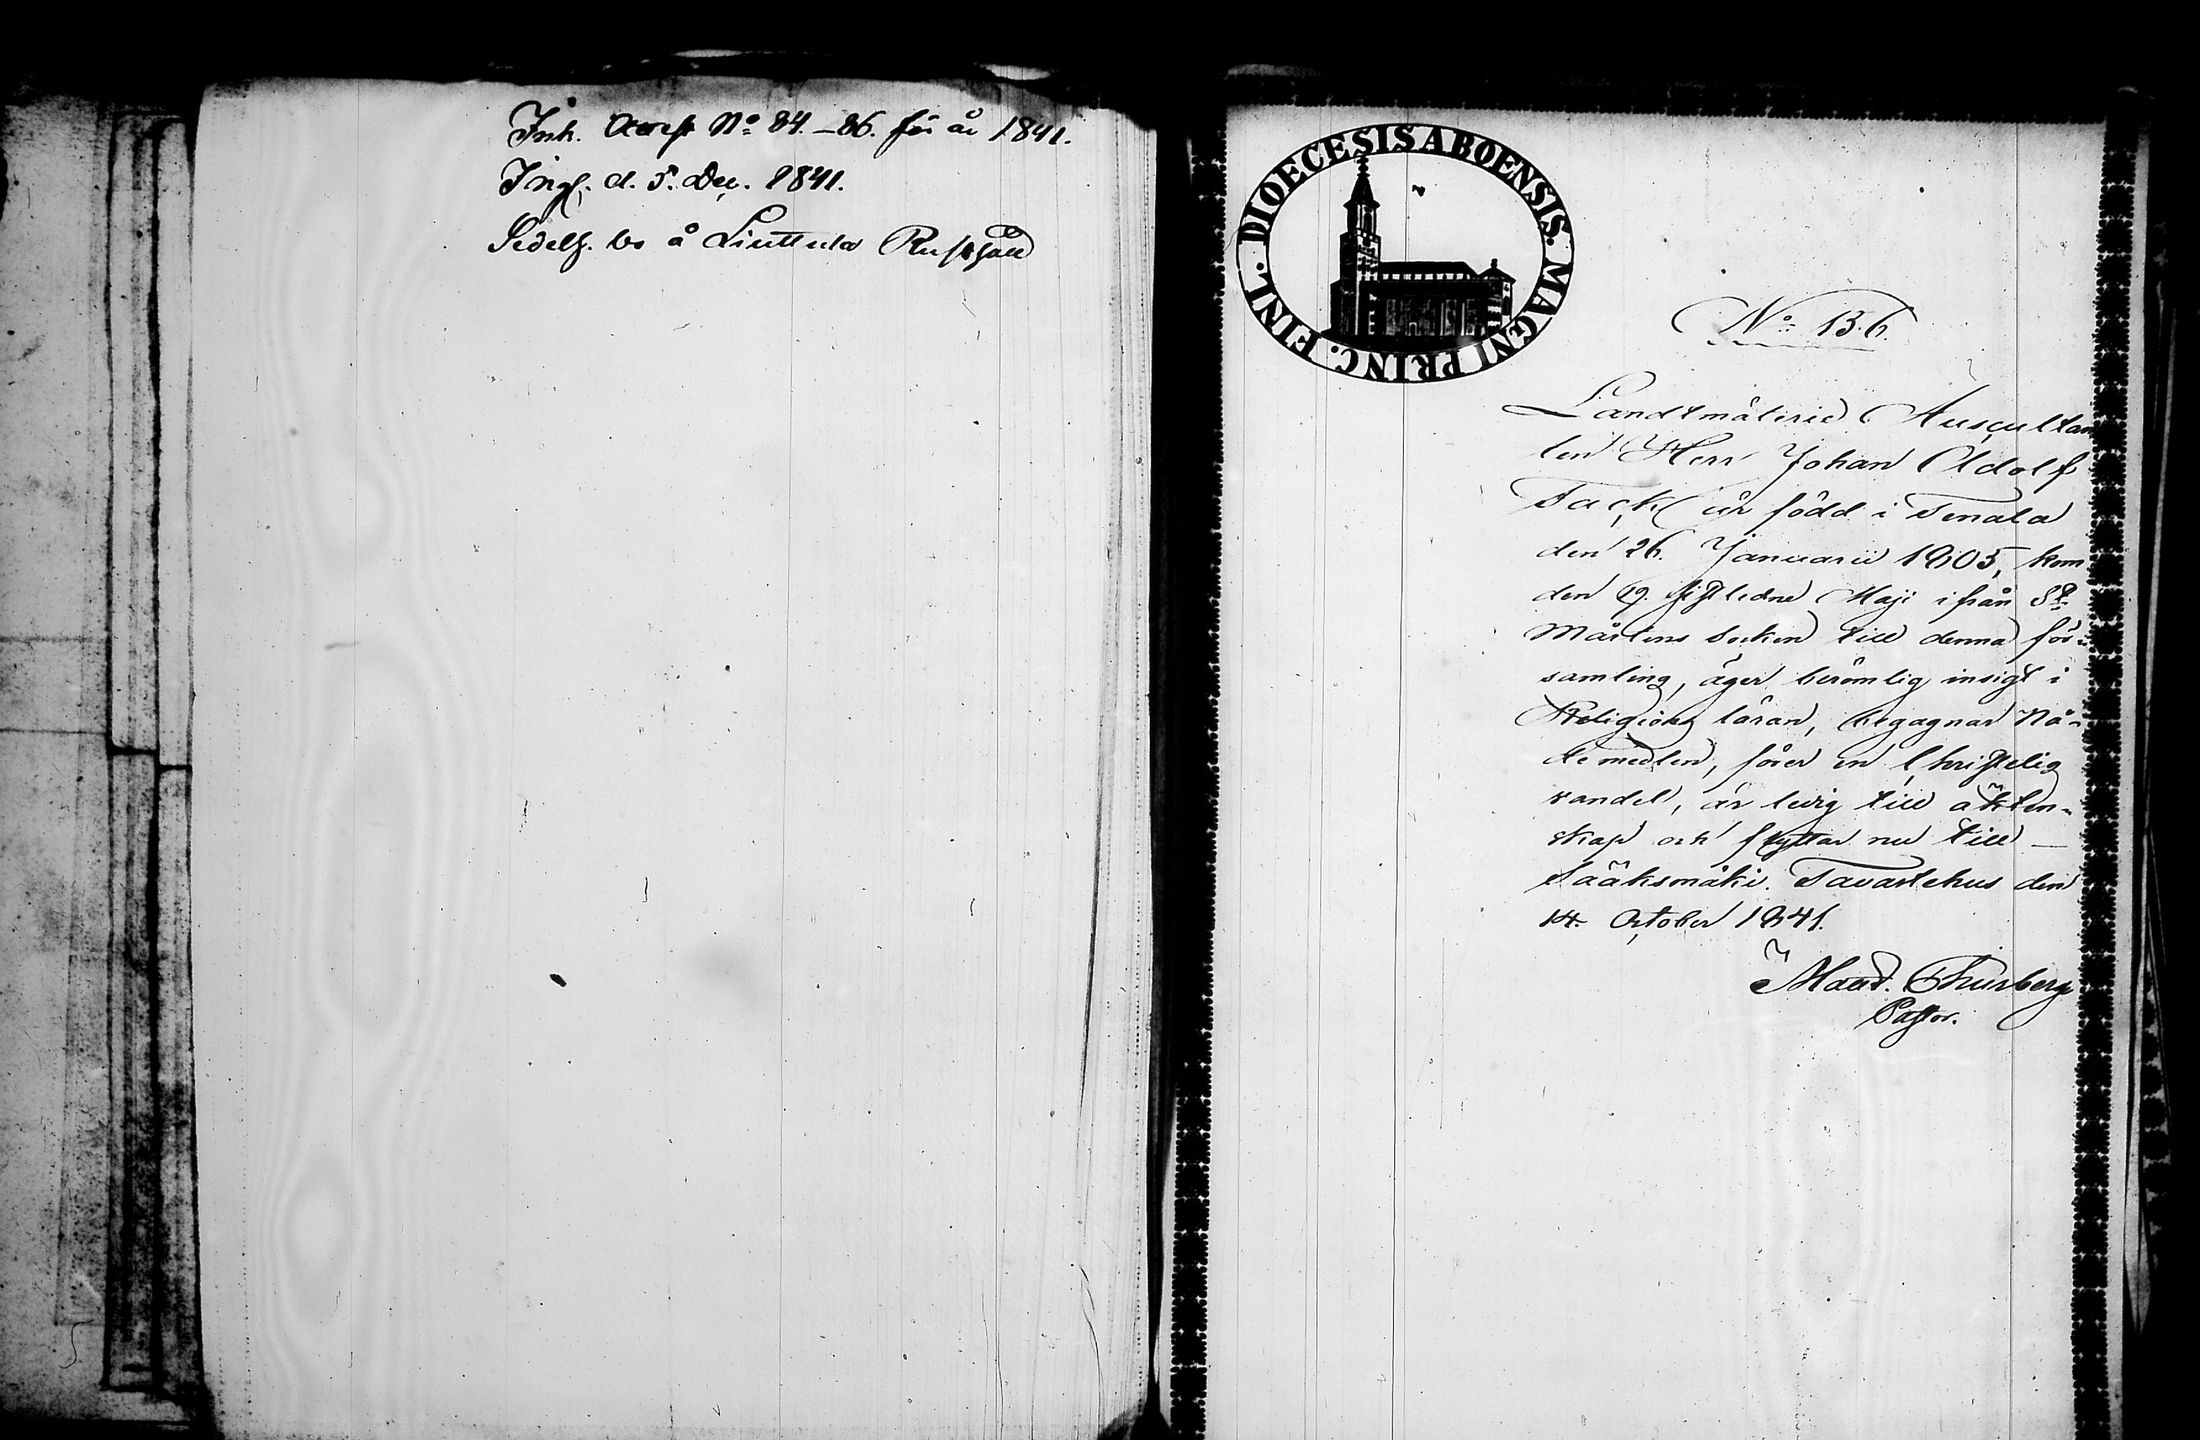 Inh. Attest No 84.-86. för år 1841.
d. 5. Dec. 1841.
bo å Liuttula Rusthåll
DIOECESIS ABOENSIS. MAGNI PRINC. FINL.
No 136.
Landtmäterie Auscultan
ten Herr Johan Adolf
Tack är född i Tenala
den 26. Januarii 1805, kom
den 19. sistledne Maji ifrån St
Mårtens Socken till denna för-
samling, äger berömlig insigt i
Religions läran, begagnar Nå-
demedlen, förer en Christelig
vandel, är ledig till äkten-
skap och flyttar nu till
Sääksmäki. Tavastehus den
14. October 1841.
Thurberg
Pastor.